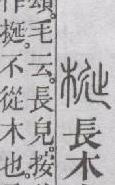 梴長木
頌。毛云。長皃。按
作挻。不從木也。